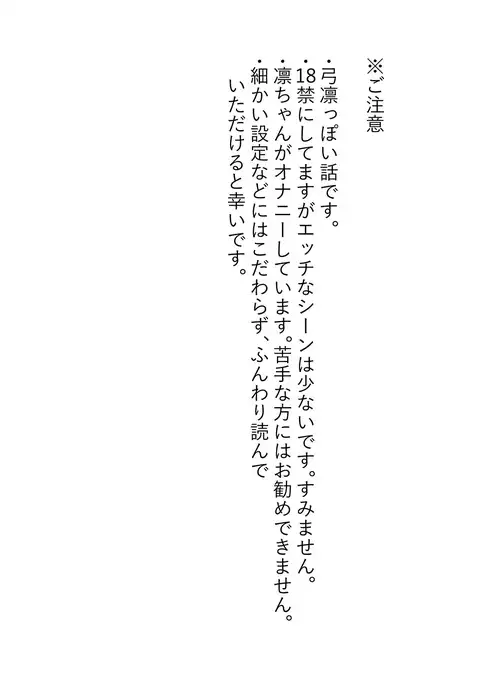 ※ご注意
・弓凛っぽい話です。
・18禁にしてますがエッチなシーンは少ないです。すみません。
・凛ちゃんがオナニーしています。苦手な方にはお勧めできません。
・細かい設定などにはこだわらず、ふんわり読んで
いただけると幸いです。